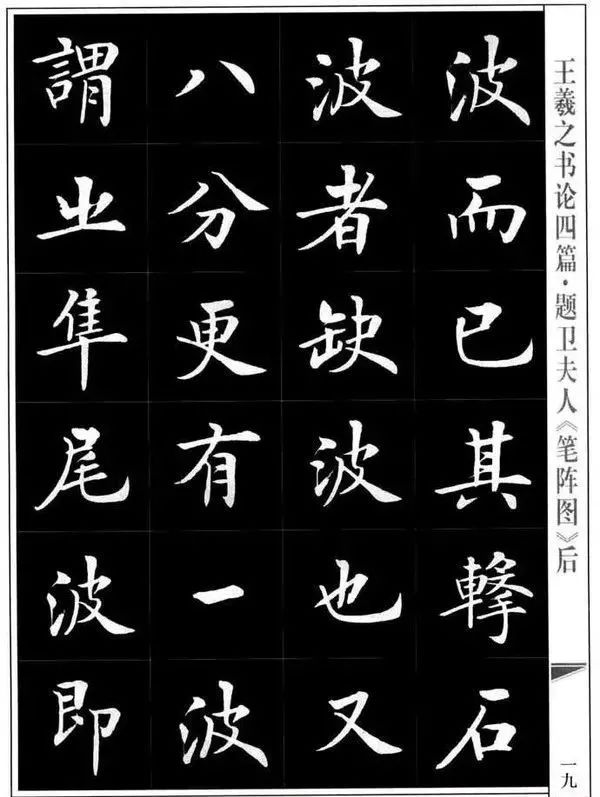 波而已其擊石
波者缺波也又
八分更有一波
謂之隼尾波即
王羲之书论四篇·题卫夫人《笔阵图》后
一九